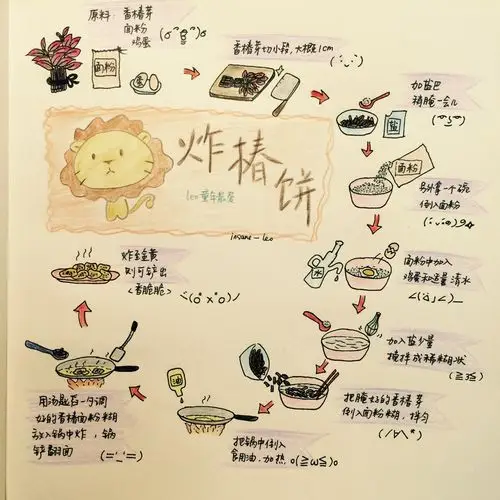 原料：香椿芽
面粉
鸡蛋
面粉
香椿芽切小段，大概1cm
加盐巴
稍腌一会儿
盐
面粉
另外拿一个碗
倒入面粉
面粉中加入
鸡蛋和适量清水
水
加入盐少量
搅拌成稀糊状
把腌好的香椿芽
倒入面粉糊，拌匀
油
把锅中倒入
食用油，加热
用汤匙舀一勺调
好的香椿面粉糊
放入锅中炸，锅
铲翻面
炸至金黄
则可铲出
<香脆脆>
炸椿饼
Leo童年最爱
insane-leo